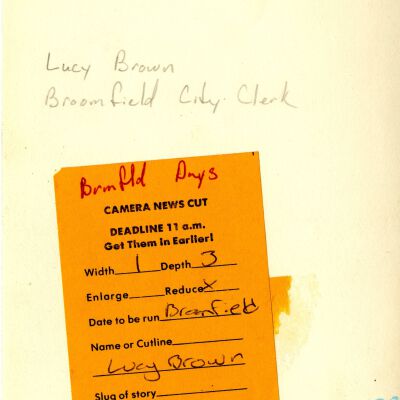 Lucy Brown
Broomfield City Clerk
Brmfld Days
CAMERA NEWS CUT
DEADLINE 11 a.m.
Get Them In Earlier!
Width 1 Depth 3
Enlarge Reduce X
Date to be run Broomfield
Name or Cutline
Lucy Brown
Slug of story